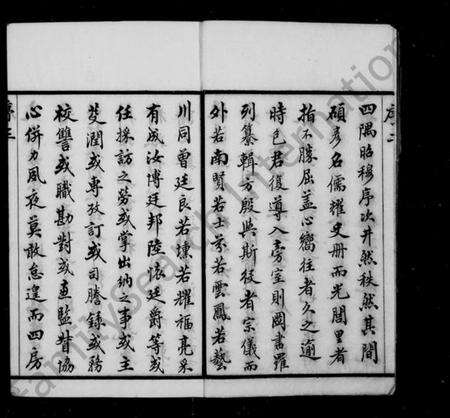 四隅昭穆序次井然秩然其間
碩彥名儒耀史冊而光閭里者
指不勝屈蓋心嚮往者久之適
時邑君復導入旁室則岡書羅
列纂輯方殷與斯役者宗儀而
外若南賢若士芬若雲鳳若藝
川同曾廷良若壎若耀福亮采
有成汝博廷邦陸滾廷爵等或
任採訪之勞或掌出納之事或主
芟潤或專攷訂或司謄錄或務
校讐或職勘對或直監督協
心併力夙夜莫敢怠遑而四房
序二
序三
FamilySearch International